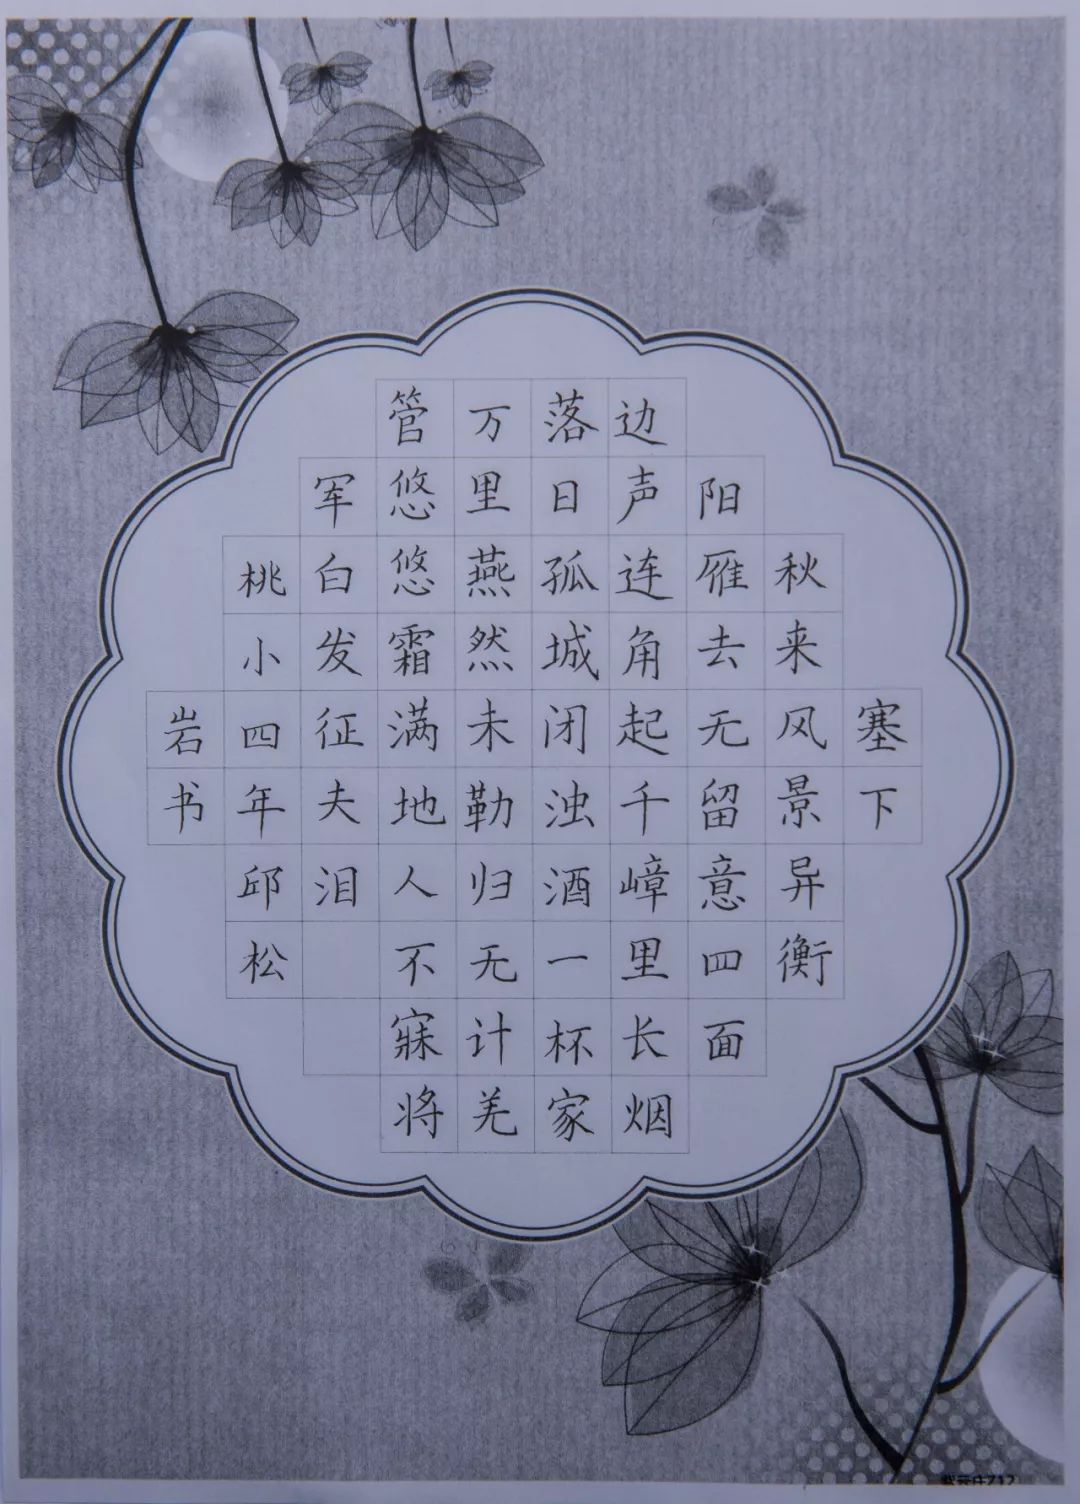 塞下
秋来风景异衡
阳雁去无留意四面
边声连角起千嶂里长烟
落日孤城闭浊酒一杯家
万里燕然未勒归无计羌
管悠悠霜满地人不寐将
军白发征夫泪
桃小四年邱松
岩书